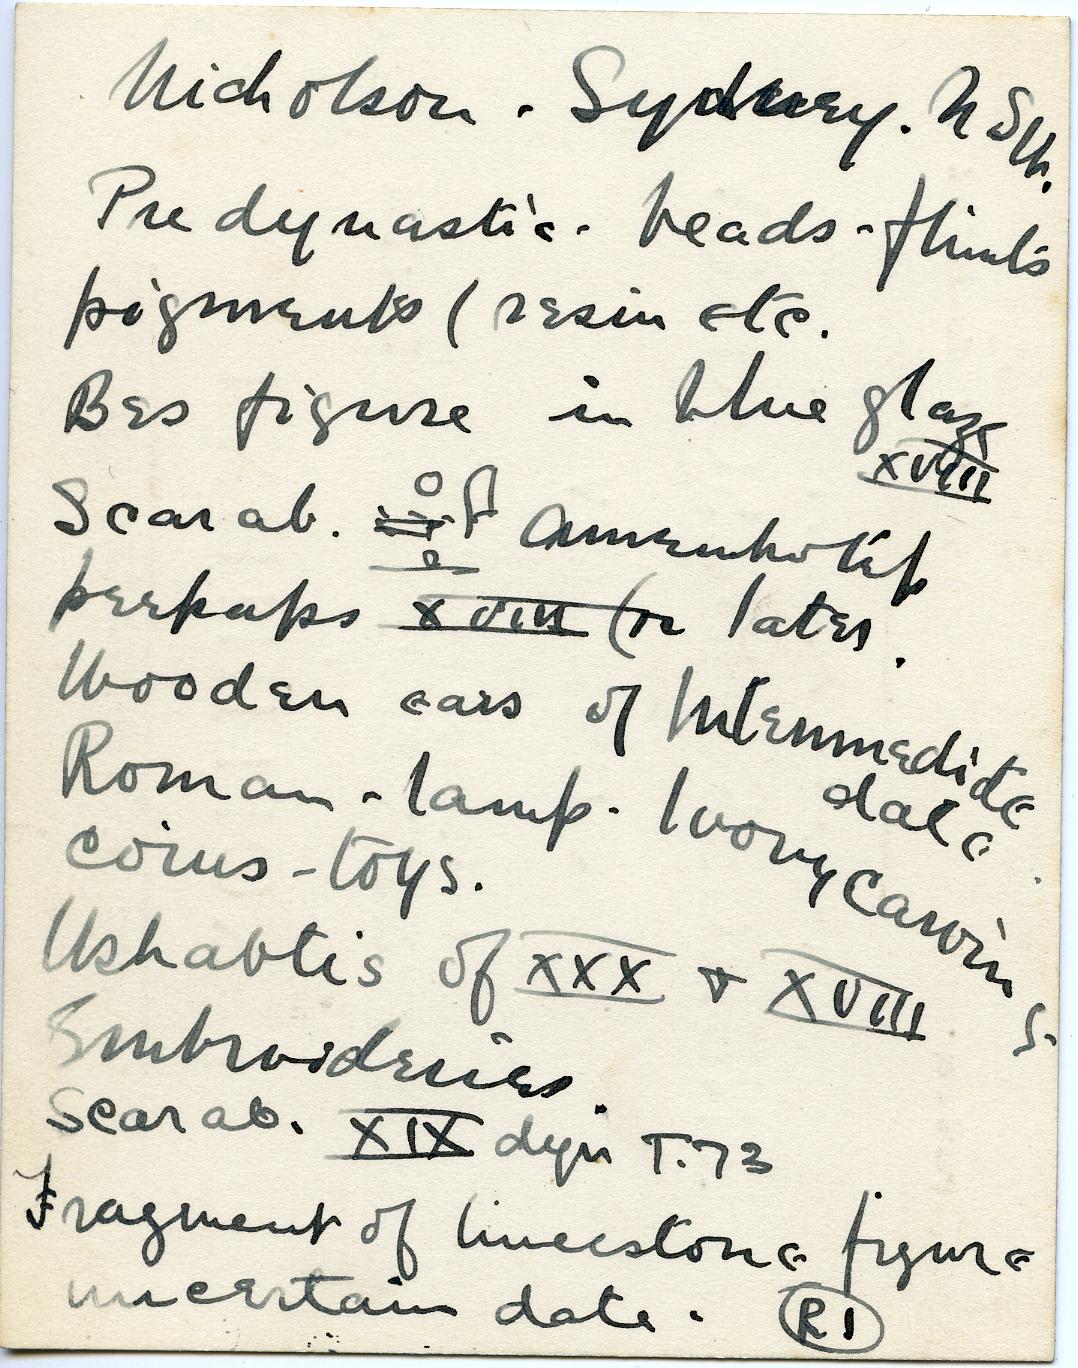 Nicholson. Sydney. NSW.
Predynastic. beads-flints
pigments (resin etc.
Bes figure in blue glaze
XVIII
Scarab. Amenhotep
perhaps XVIII or later.
Wooden ears of Intermediate
date.
Roman-lamp. Ivory carvings.
coins-toys.
Ushabtis of XXX & XVIII
Embroideries.
Scarab. XIX dyn T.73
Fragment of limestone figure
uncertain date. R1